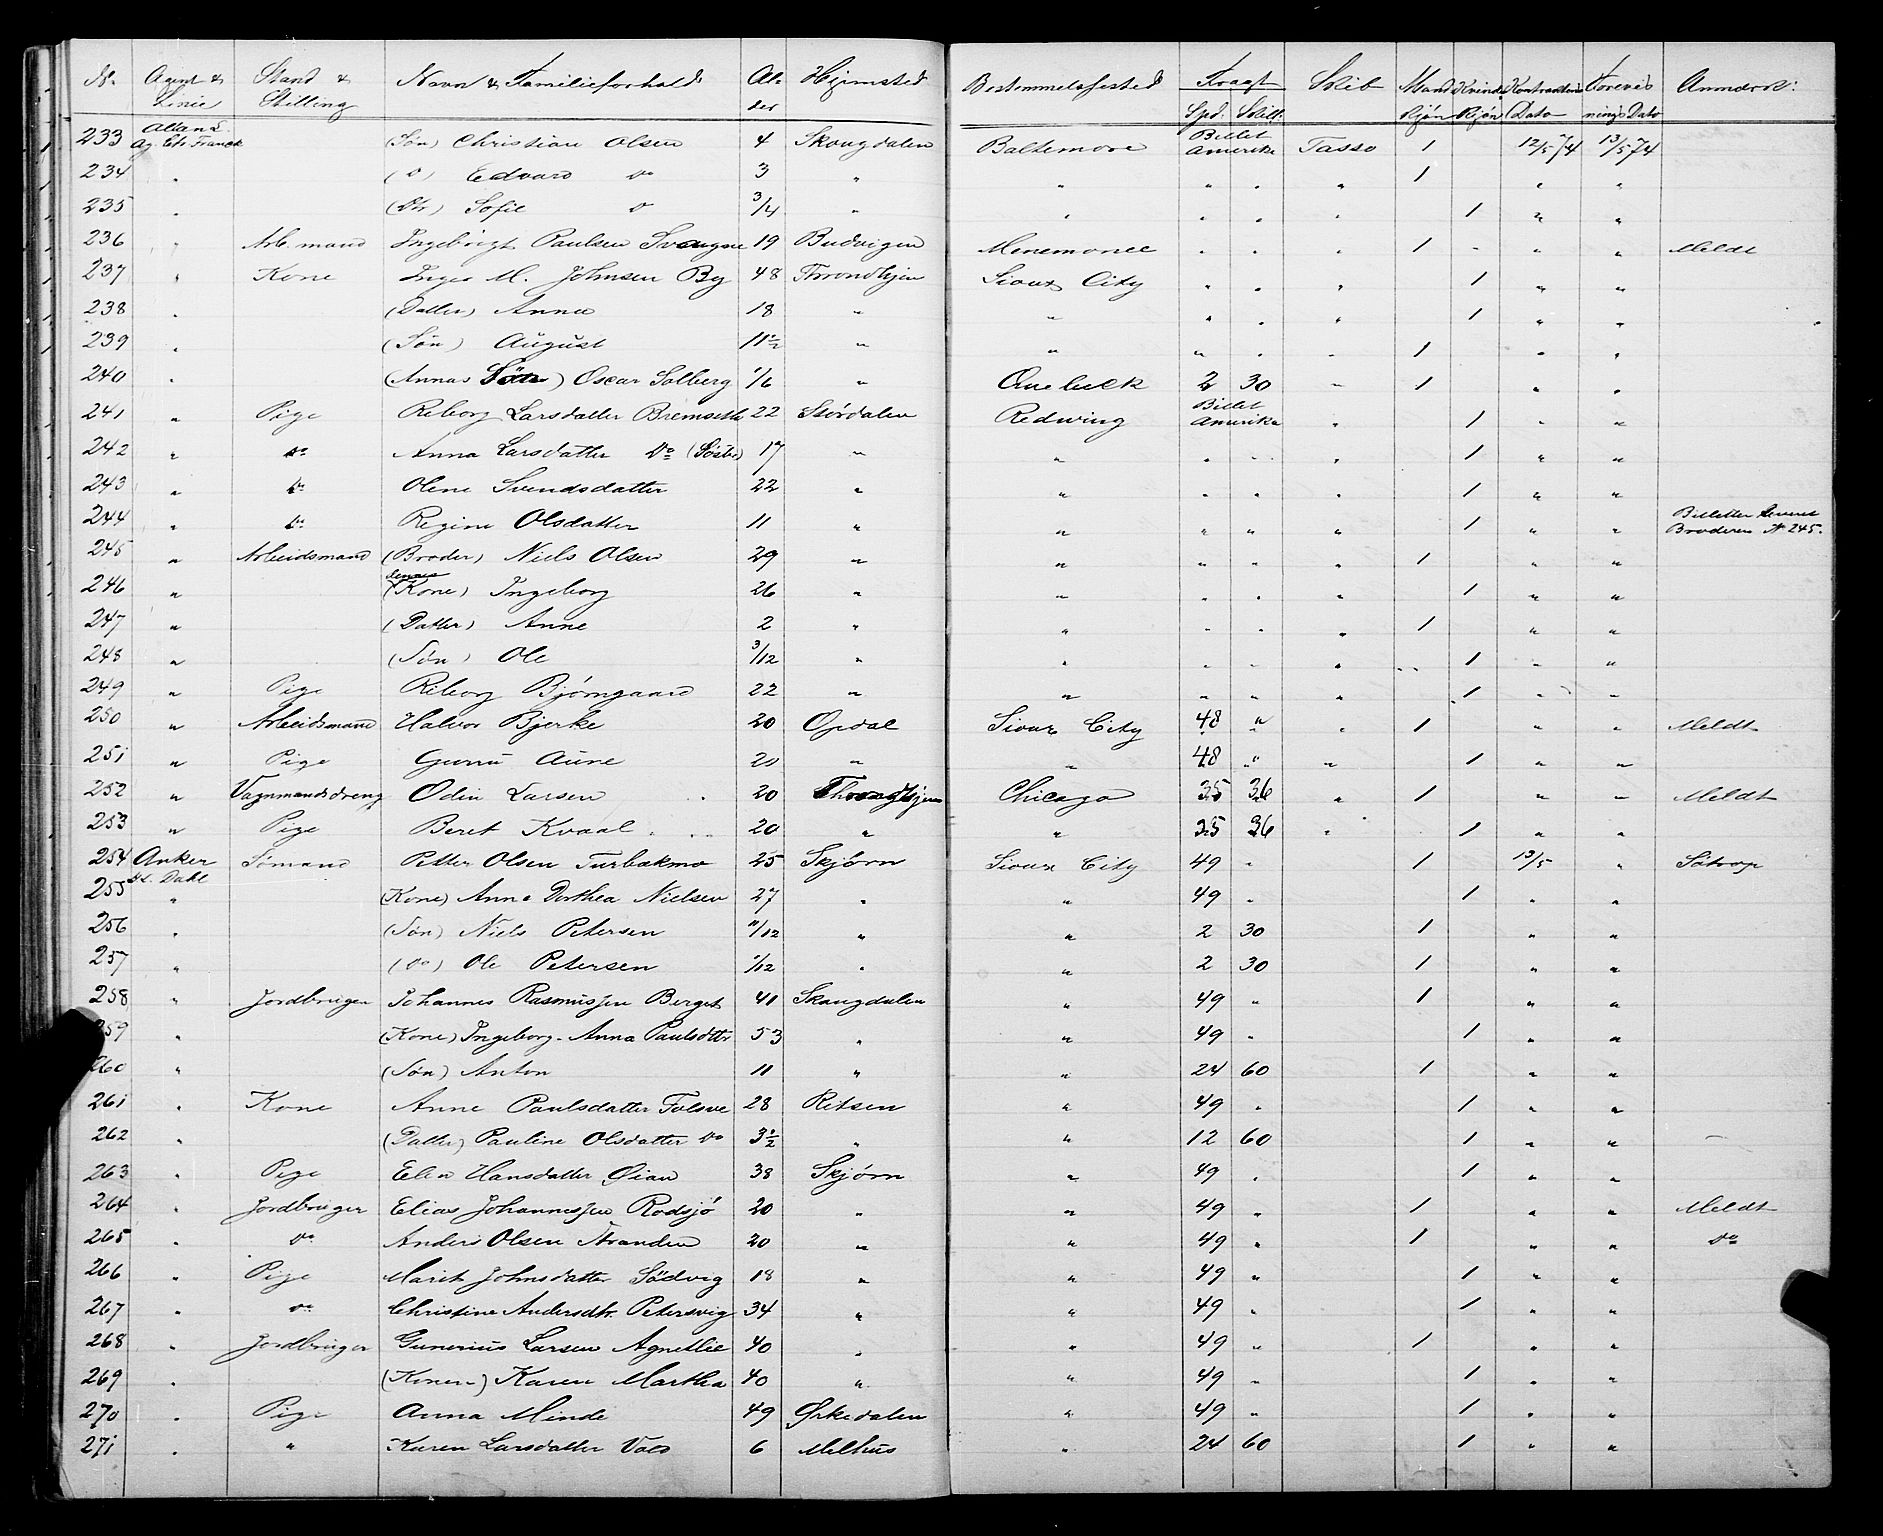 No Agent & Linie Stand & Stilling Navn & Familieforhold Alder Hjemsted Bestemmelsessted Fragt Spd. Skill. Skib Mand Kjøn Kvinde Kjøn Kontraktens Dato Forevisnings Dato Anmærk:
233 Allan L. Ag. Chr. Franck (Søn) Christian Olsen 4 Skaugdalen Baltemore Billet Amerika Tasso 1 12/5 74 13/5 74
234 " (do) Edvard do 3 " " " " " 1 " "
235 " (Dtr) Sofie do 3/4 " " " " " 1 " "
236 " Arb. mand Ingebrigt Paulsen 19 Budvigen Menemonee " " " 1 " " Meldt
237 " Kone Inger M. Johnsen By 48 Throndhjem Sioux City " " " 1 " "
238 " (Datter) Anna 18 " " " " " 1 " "
239 " (Søn) August 11 1/2 " " " " " 1 " "
240 " (Annas Søn) Oscar Solberg 1/6 " Quebeck 2 30 " 1 " "
241 " Pige Reborg Larsdatter 22 Størdalen Redwing Billet Amerika " 1 " "
242 " do Anna Larsdatter do (Søster) 17 " " " " " 1 " "
243 " do Olene Svendsdatter 22 " " " " " 1 " "
244 " do Regine Olsdatter 11 " " " " " 1 " " Billetter leveret Broderen No 245.
245 " Arbeidsmand (Broder) Niels Olsen 29 " " " " " 1 " "
246 " (dennes Kone) Ingeborg 26 " " " " " 1 " "
247 " (Datter) Anne 2 " " " " " 1 " "
248 " (Søn) Ole 3/12 " " " " " 1 " "
249 " Pige Reborg Bjørngaard 22 " " " " " 1 " "
250 " Arbeidsmand Halvor Bjerke 20 Opdal Sioux City 48 " " 1 " " Meldt
251 " Pige Guru Aune 20 " " 48 " " 1 " "
252 " Vognmandsdreng Odin Larsen 20 Throndhjem Chicago 35 36 " 1 " " Meldt
253 " Pige Beret Kvaal 20 " " 35 36 " 1 " "
254 Anker H. Dahl Sömand Petter Olsen Turbakmo 25 Skjørn Sioux City 49 " 1 13/5 "
255 " (Kone) Anne Dorthea Nielsen 27 " " 49 " 1 " "
256 " (Søn) Niels Petersen 11/12 " " 2 30 1 " "
257 " (do) Ole Petersen 1/12 " " 2 30 1 " "
258 " Jordbruger Johannes Rasmussen Berget 41 Skaugdalen " 49 " 1 " "
259 " (Kone) Ingeborg Anna Paulsdttr 53 " " 49 " 1 " "
260 " (Søn) Anton 11 " " 24 60 1 " "
261 " Kone Anne Paulsdatter 28 Ritsen " 49 " 1 " "
262 " (Datter) Pauline Olsdatter do 3 1/2 " " 12 60 1 " "
263 " Pige Elen Hansdatter Øian 38 Skjørn " 49 " 1 " "
264 " Jordbruger Elias Johannessen Rødsjö 20 " " 49 " 1 " " Meldt
265 " do Anders Olsen Stranden 20 " " 49 " 1 " " do
266 " Pige Marit Johnsdatter Södvig 18 " " 49 " 1 " "
267 " do Christine Andersdtr. Petersvig 34 " " 49 " 1 " "
268 " Jordbruger Gunerius Larsen Agnetlie 40 " " 49 " 1 " "
269 " (Konen) Karen Martha 40 " " 49 " 1 " "
270 " Pige Anna Minde 49 Ørkedalen " 49 " 1 " "
271 " " Karen Larsdatter 6 Melhus " 24 60 1 " "